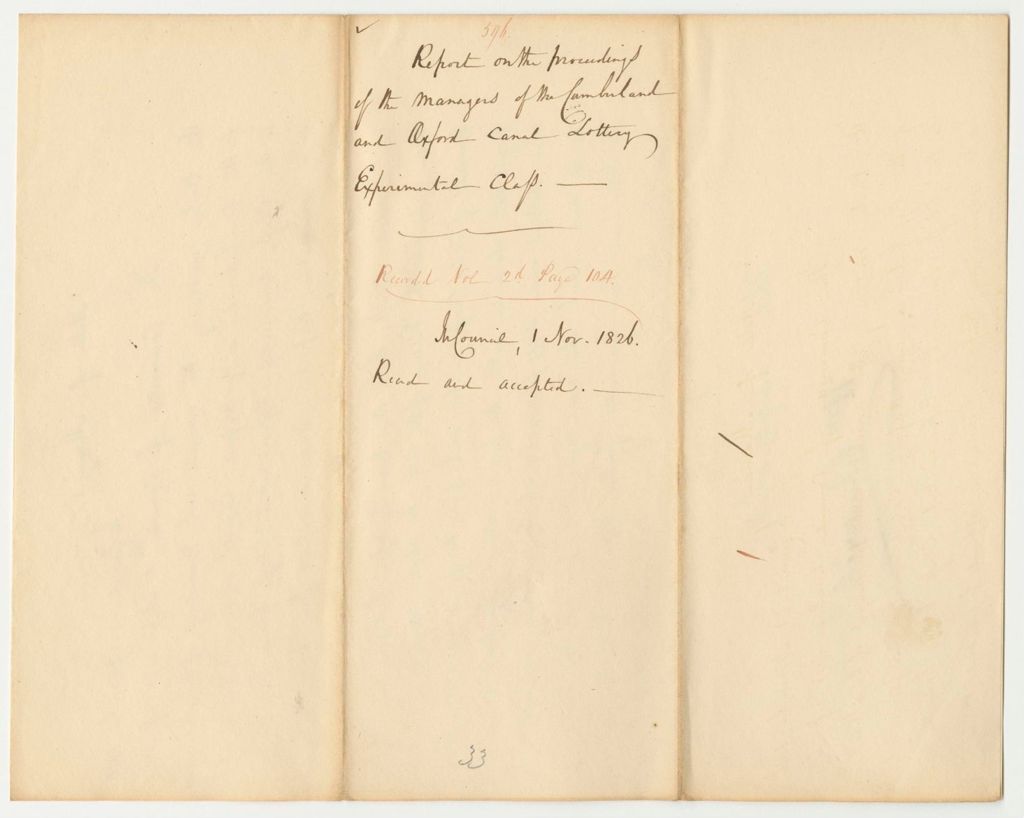 596.
Report on the proceedings
of the managers of the Cumberland
and Oxford Canal Lottery
Experimental Class. —
Record'd Vol 2d. Page 104.
In Council, 1 Nov. 1826.
Read and accepted. —
33